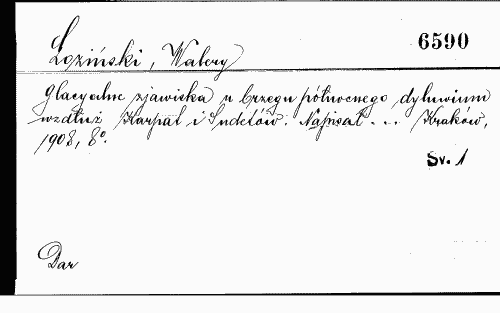 6590
Łoziński, Walery
Glacyalne zjawiska u brzegu północnego dyluwium
wzdłuż Karpat i Sudetów. Napisał ... Kraków,
1908, 8º.
Sv. 1
Dar